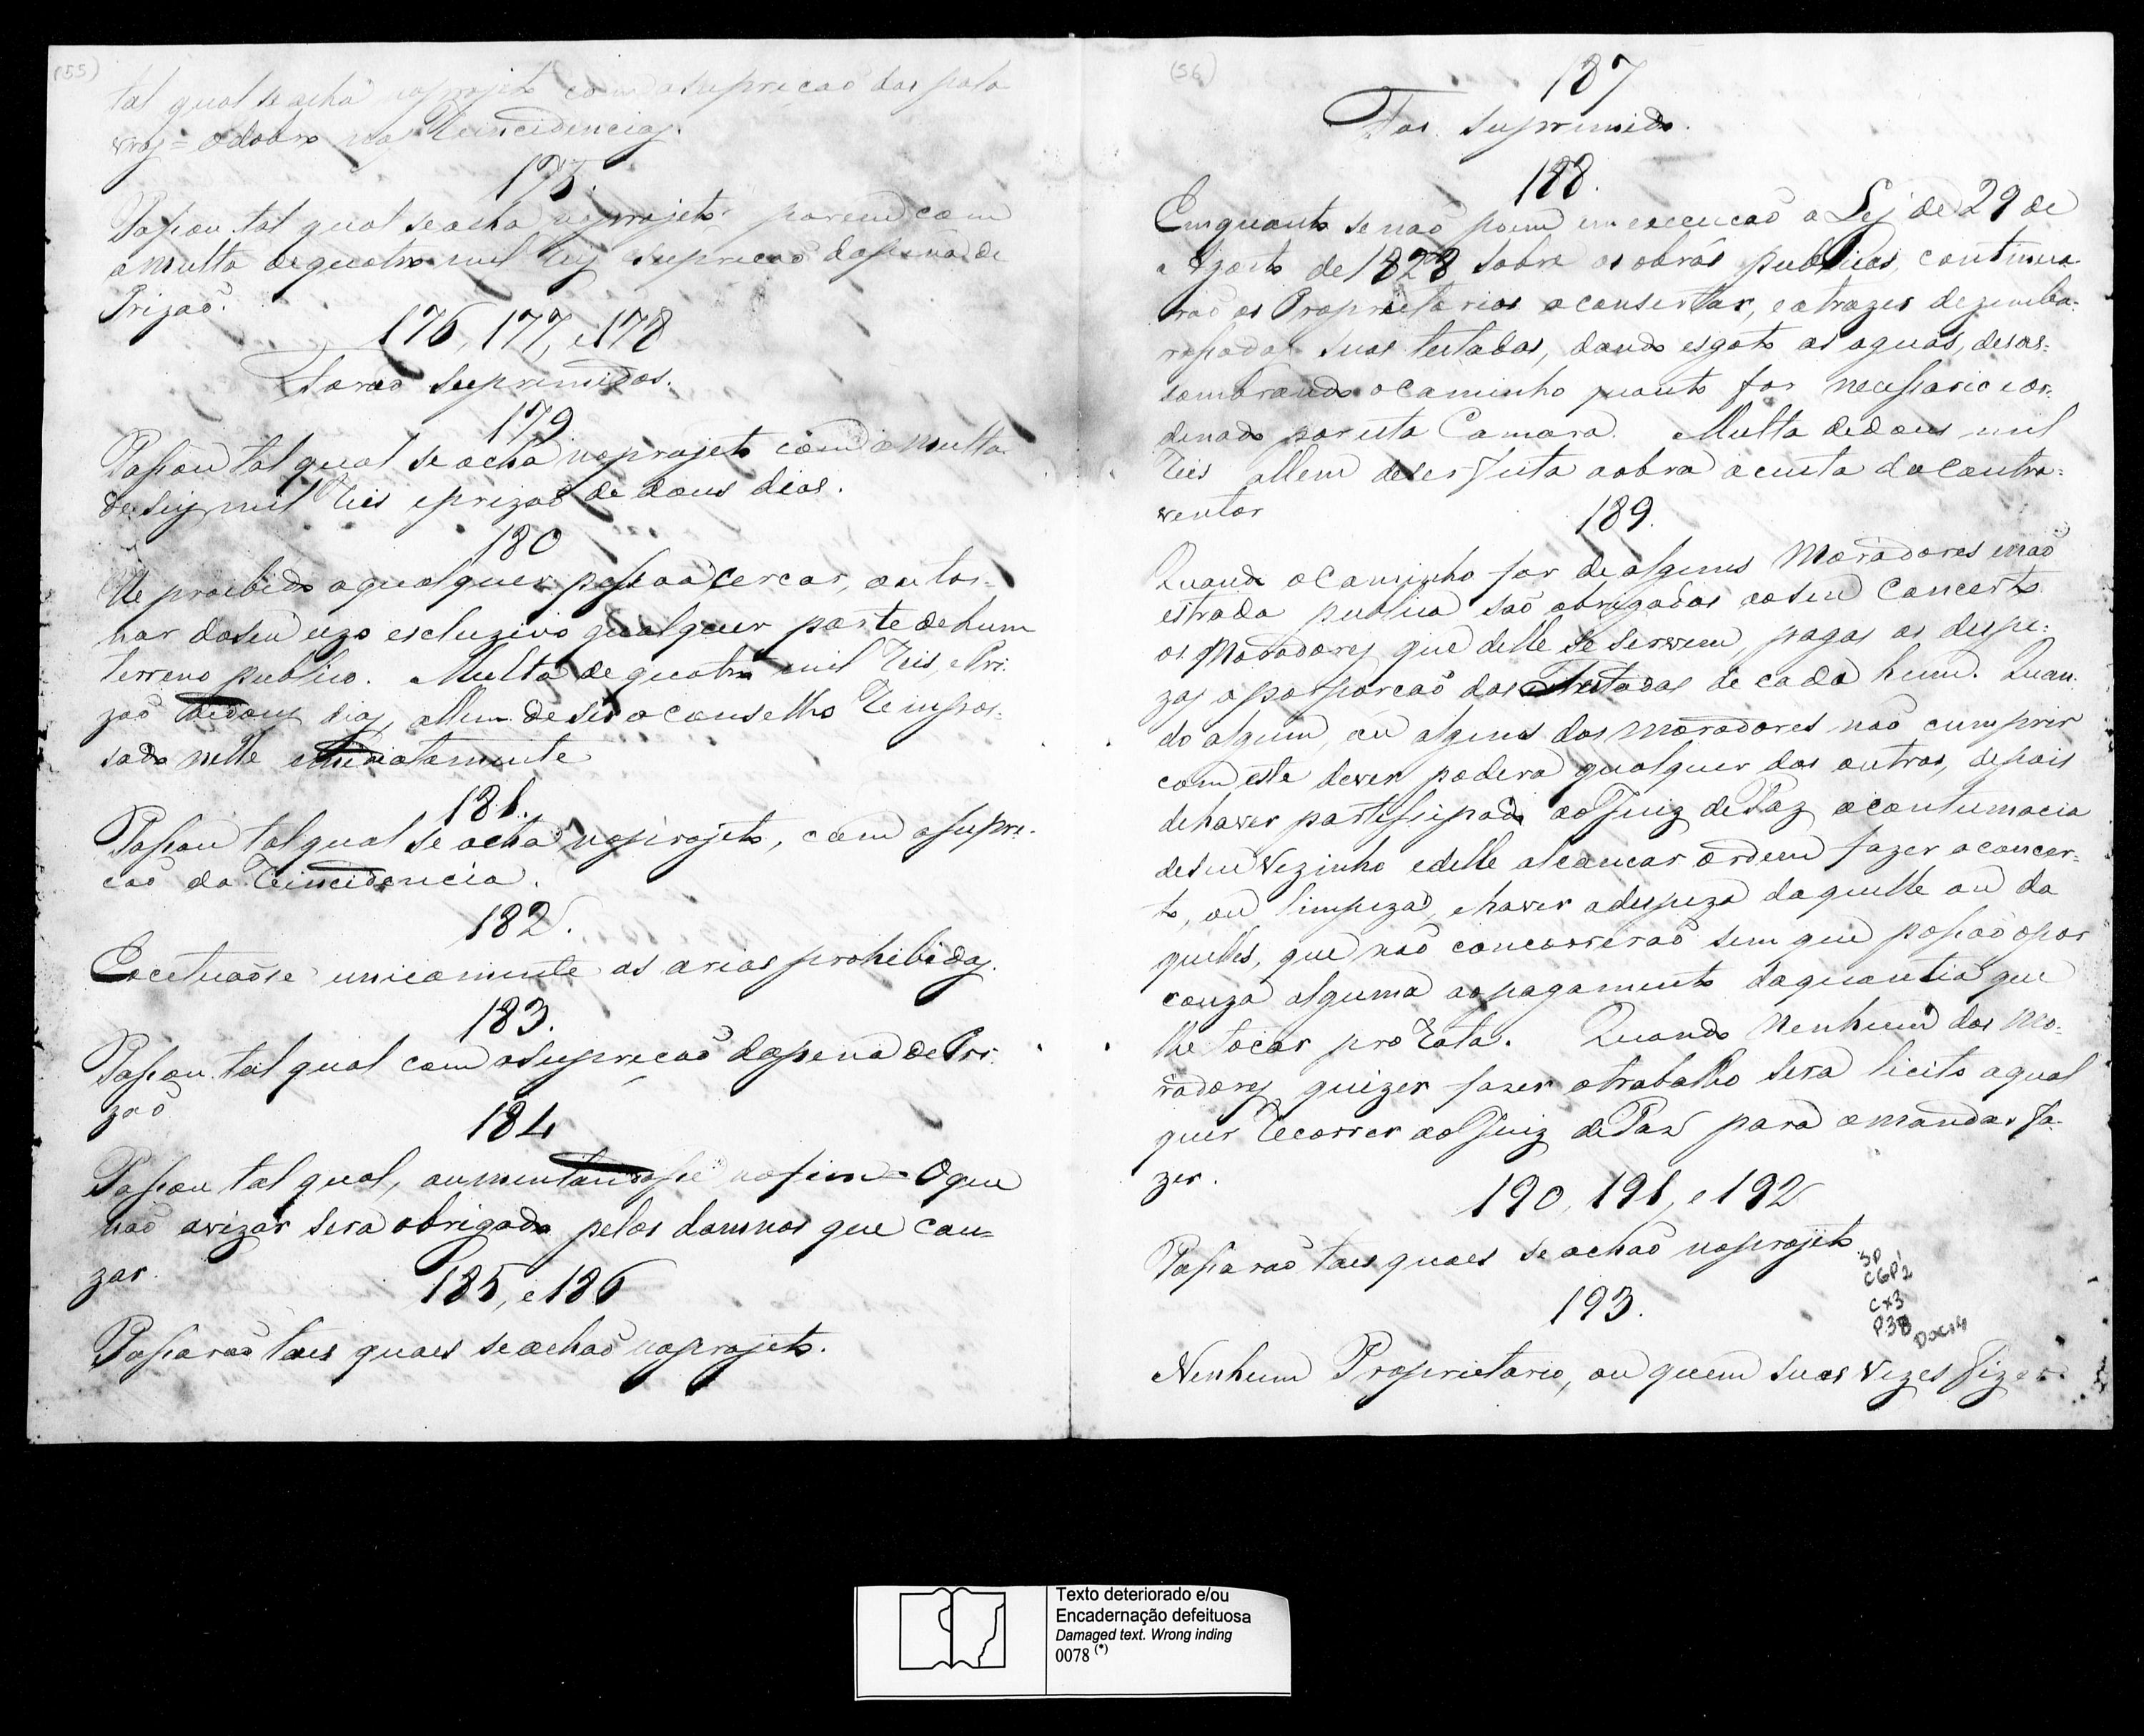 (55)
tal qual se acha no projeto com a supreçaõ das pala
vras = o dobro nas Reincidencias.
175.
Passou tal qual se acha no projeto porem com
a multa de quatro mil reis supreçaõ da pena de
Prizaõ.
176, 177, e 178
Foraõ suprimidos.
179
Passou tal qual se acha no projeto com a multa
de seis mil Reis e prizaõ de dous dias.
180
He proibido a qualquer pessoa cercar, ou tor-
nar do seu uzo escluzivo qualquer parte de hum
terreno publico. Multa de quatro mil Reis, e Pri:
zaõ de dous dias, allem de ser o conselho Rempos:
sado nelle emediatamente
181.
Passou tal qual se acha no projeto, com a supre-
çaõ da Reincidencia.
182.
Excetuaõse unicamente as arias prohibidas.
183.
Passou tal qual com a supreçaõ da pena de Pri:
zaõ
184
Passou tal qual, aumentandose no fim = O que
naõ avizar sera obrigado pelos damnos que cau=
zar.
185, e 186
Passaraõ taes quaes se achaõ no projeto.
(56)
187
Foi suprimido.
188.
Emquanto se naõ poem em execucaõ a Lej de 29 de
Agosto de 1828 sobre as obras publicas, continua-
raõ os Proprietarios a consertar, e a trazer dezemba:
rassadas suas testadas, dando esgoto as aguas, desas:
sombrando o caminho quanto for necessario e or:
denado por esta Camara. Multa de dous mil
Reis allem de ser feita a obra a custa do contra=
ventor
189.
Quando o caminho for de alguns Moradores e naõ
estrada publica saõ obrigados ao seu Concerto
os Moradores que delle se servirem, pagas as despe:
zas a porporcaõ das Testadas de cada hum. Quan:
do algum, ou alguns dos moradores naõ cumprir
com este dever podera qualquer dos outros, depois
de haver partissipado ao Juiz de Paz a contumacia
de seu Vezinho e delle alcancar ordem fazer o concer=
to, ou limpeza, e haver a despeza daquelle ou da
quelles, que naõ concorreraõ sem que possaõ opor
couza alguma ao pagamento da quantia que
lhe tocar pro Rata. Quando Nenhum dos Mo-
radores quizer fazer o trabalho sera licito a qual
quer Recorrer ao Juiz de Paz para o mandar fa-
zer.
190, 191, e 192
Passaraõ taes quaes se achaõ no projeto
SP
CGP2
CX3
P3B
Doc14
193.
Nenhum Proprietario, ou quem suas vezes fizer
Texto deteriorado e/ou
Encadernação defeituosa
Damaged text. Wrong inding
0078 (*)